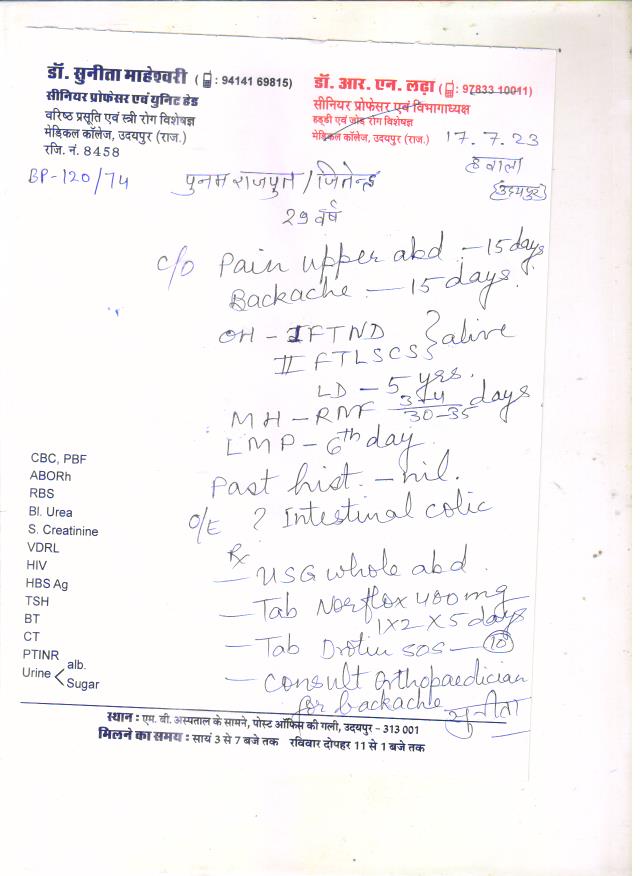 डॉ. सुनीता माहेश्वरी ( : 94141 69815)
सीनियर प्रोफेसर एवं युनिट हेड
वरिष्ठ प्रसूति एवं स्त्री रोग विशेषज्ञ
मेडिकल कॉलेज, उदयपुर (राज.)
रजि. नं. 8458
डॉ. आर. एन. लढ़ा ( : 97833 10011)
सीनियर प्रोफेसर एवं विभागाध्यक्ष
हड्डी एवं जोड़ रोग विशेषज्ञ
मेडिकल कॉलेज, उदयपुर (राज.)
17.7.23
हवाला
(उदयपुर)
BP-120/74
पुनम राजपुत / जितेन्द्र
29 वर्ष
c/o Pain upper abd. - 15 days.
Backache - 15 days.
OH - I FTND } alive
II FTLSCS
LD - 5 yrs.
MH - RMF 3-4/30-35 days
LMP - 6th day
Past hist. - nil.
O/E ? Intestinal colic
Rx
- USG whole abd.
- Tab Norflox 400mg
1x2x5 days
- Tab Drotin SOS - 10
- Consult Orthopaedician
for backache
सुनीता
CBC, PBF
ABORh
RBS
Bl. Urea
S. Creatinine
VDRL
HIV
HBS Ag
TSH
BT
CT
PTINR
Urine < alb.
Sugar
स्थान : एम. बी. अस्पताल के सामने, पोस्ट ऑफिस की गली, उदयपुर - 313 001
मिलने का समय : सायं 3 से 7 बजे तक रविवार दोपहर 11 से 1 बजे तक